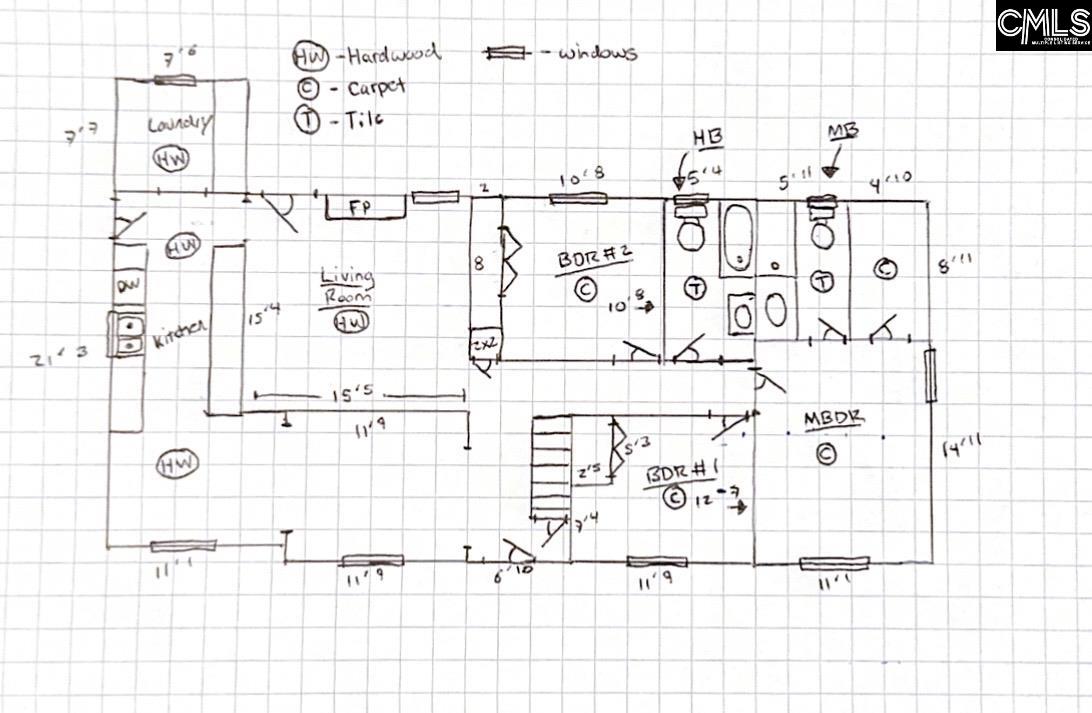 CMLS
CONSOLIDATED
MULTIPLE LISTING SERVICE
HW - Hardwood
- windows
C - Carpet
T - Tile
7'6
7'7
Laundry
HW
HB
MB
5'4
5'11
4'10
10'8
2
FP
HW
DW
Kitchen
21'3
15'4
Living
Room
HW
8
2x2
BDR #2
C
10'8
T
T
C
8'11
15'5
11'9
HW
MBDR
C
14'11
5'3
2'5
BDR #1
C 12-7
7'4
11'1
11'9
6'10
11'9
11'1